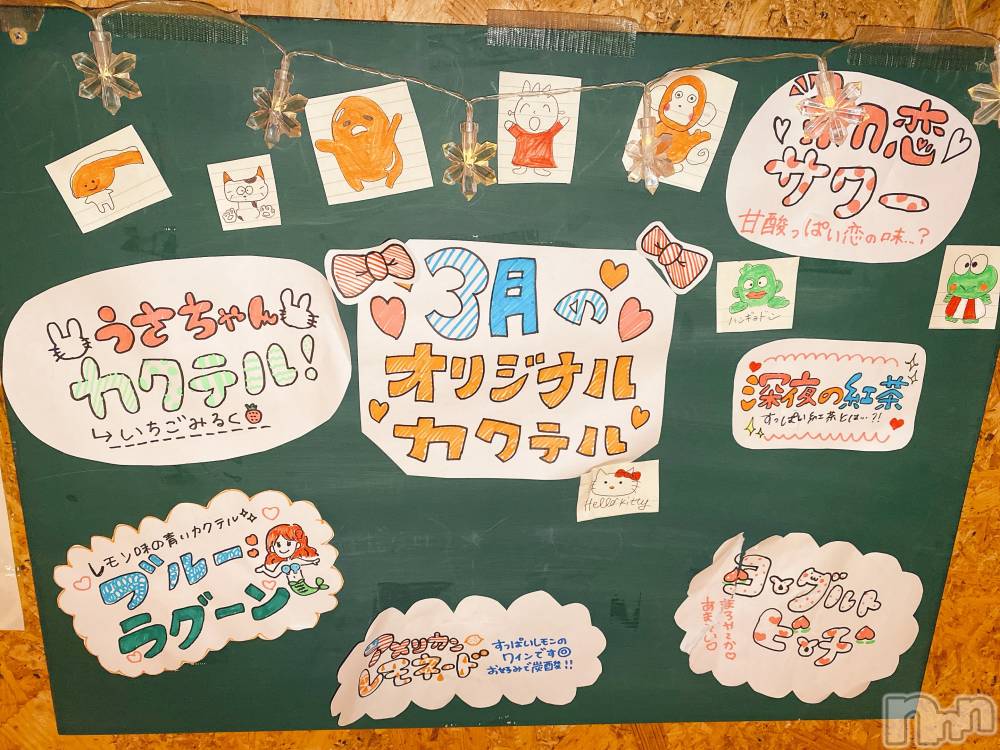 初恋
サワー
甘酸っぱい恋の味…?
3月の
オリジナル
カクテル
うさちゃん
カクテル!
↳いちごみるく
ハンギョドン
深夜の紅茶
すっぱい紅茶とは…?!
Hello Kitty
レモン味の青いカクテル
ブルー
ラグーン
アメリカン
レモネード
すっぱいレモンの
ワインです◎
お好みで炭酸!!
ヨーグルト
ピーチ
まろやかさとか
あま〜い
nn